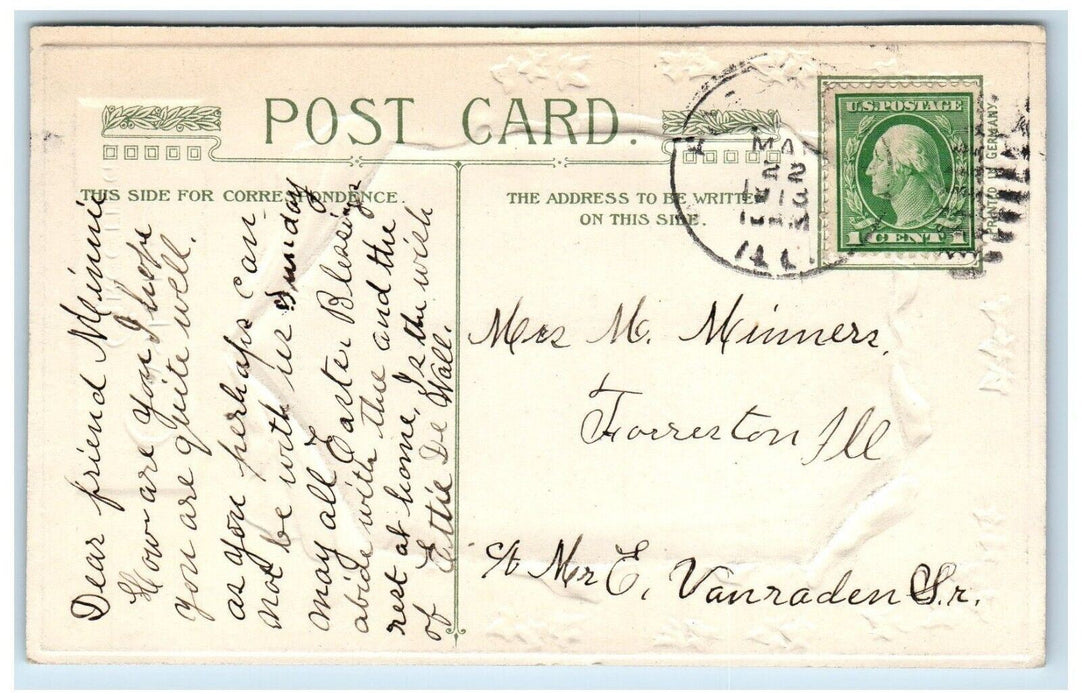 POST CARD.
THIS SIDE FOR CORRESPONDENCE.
THE ADDRESS TO BE WRITTEN
ON THIS SIDE.
U.S. POSTAGE
1 CENT 1
PRINTED IN GERMANY
MAR
22
1913
ILL.
Dear friend Minnie
How are you I hope
you are quite well.
as you perhaps can-
not be with us Sunday
may all Easter Blessing
abide with thee and the
rest at home, Is the wish
of Ettie De Wall.
Mrs M. Minners,
Forreston Ill
c/o Mr E, Vanraden Sr.